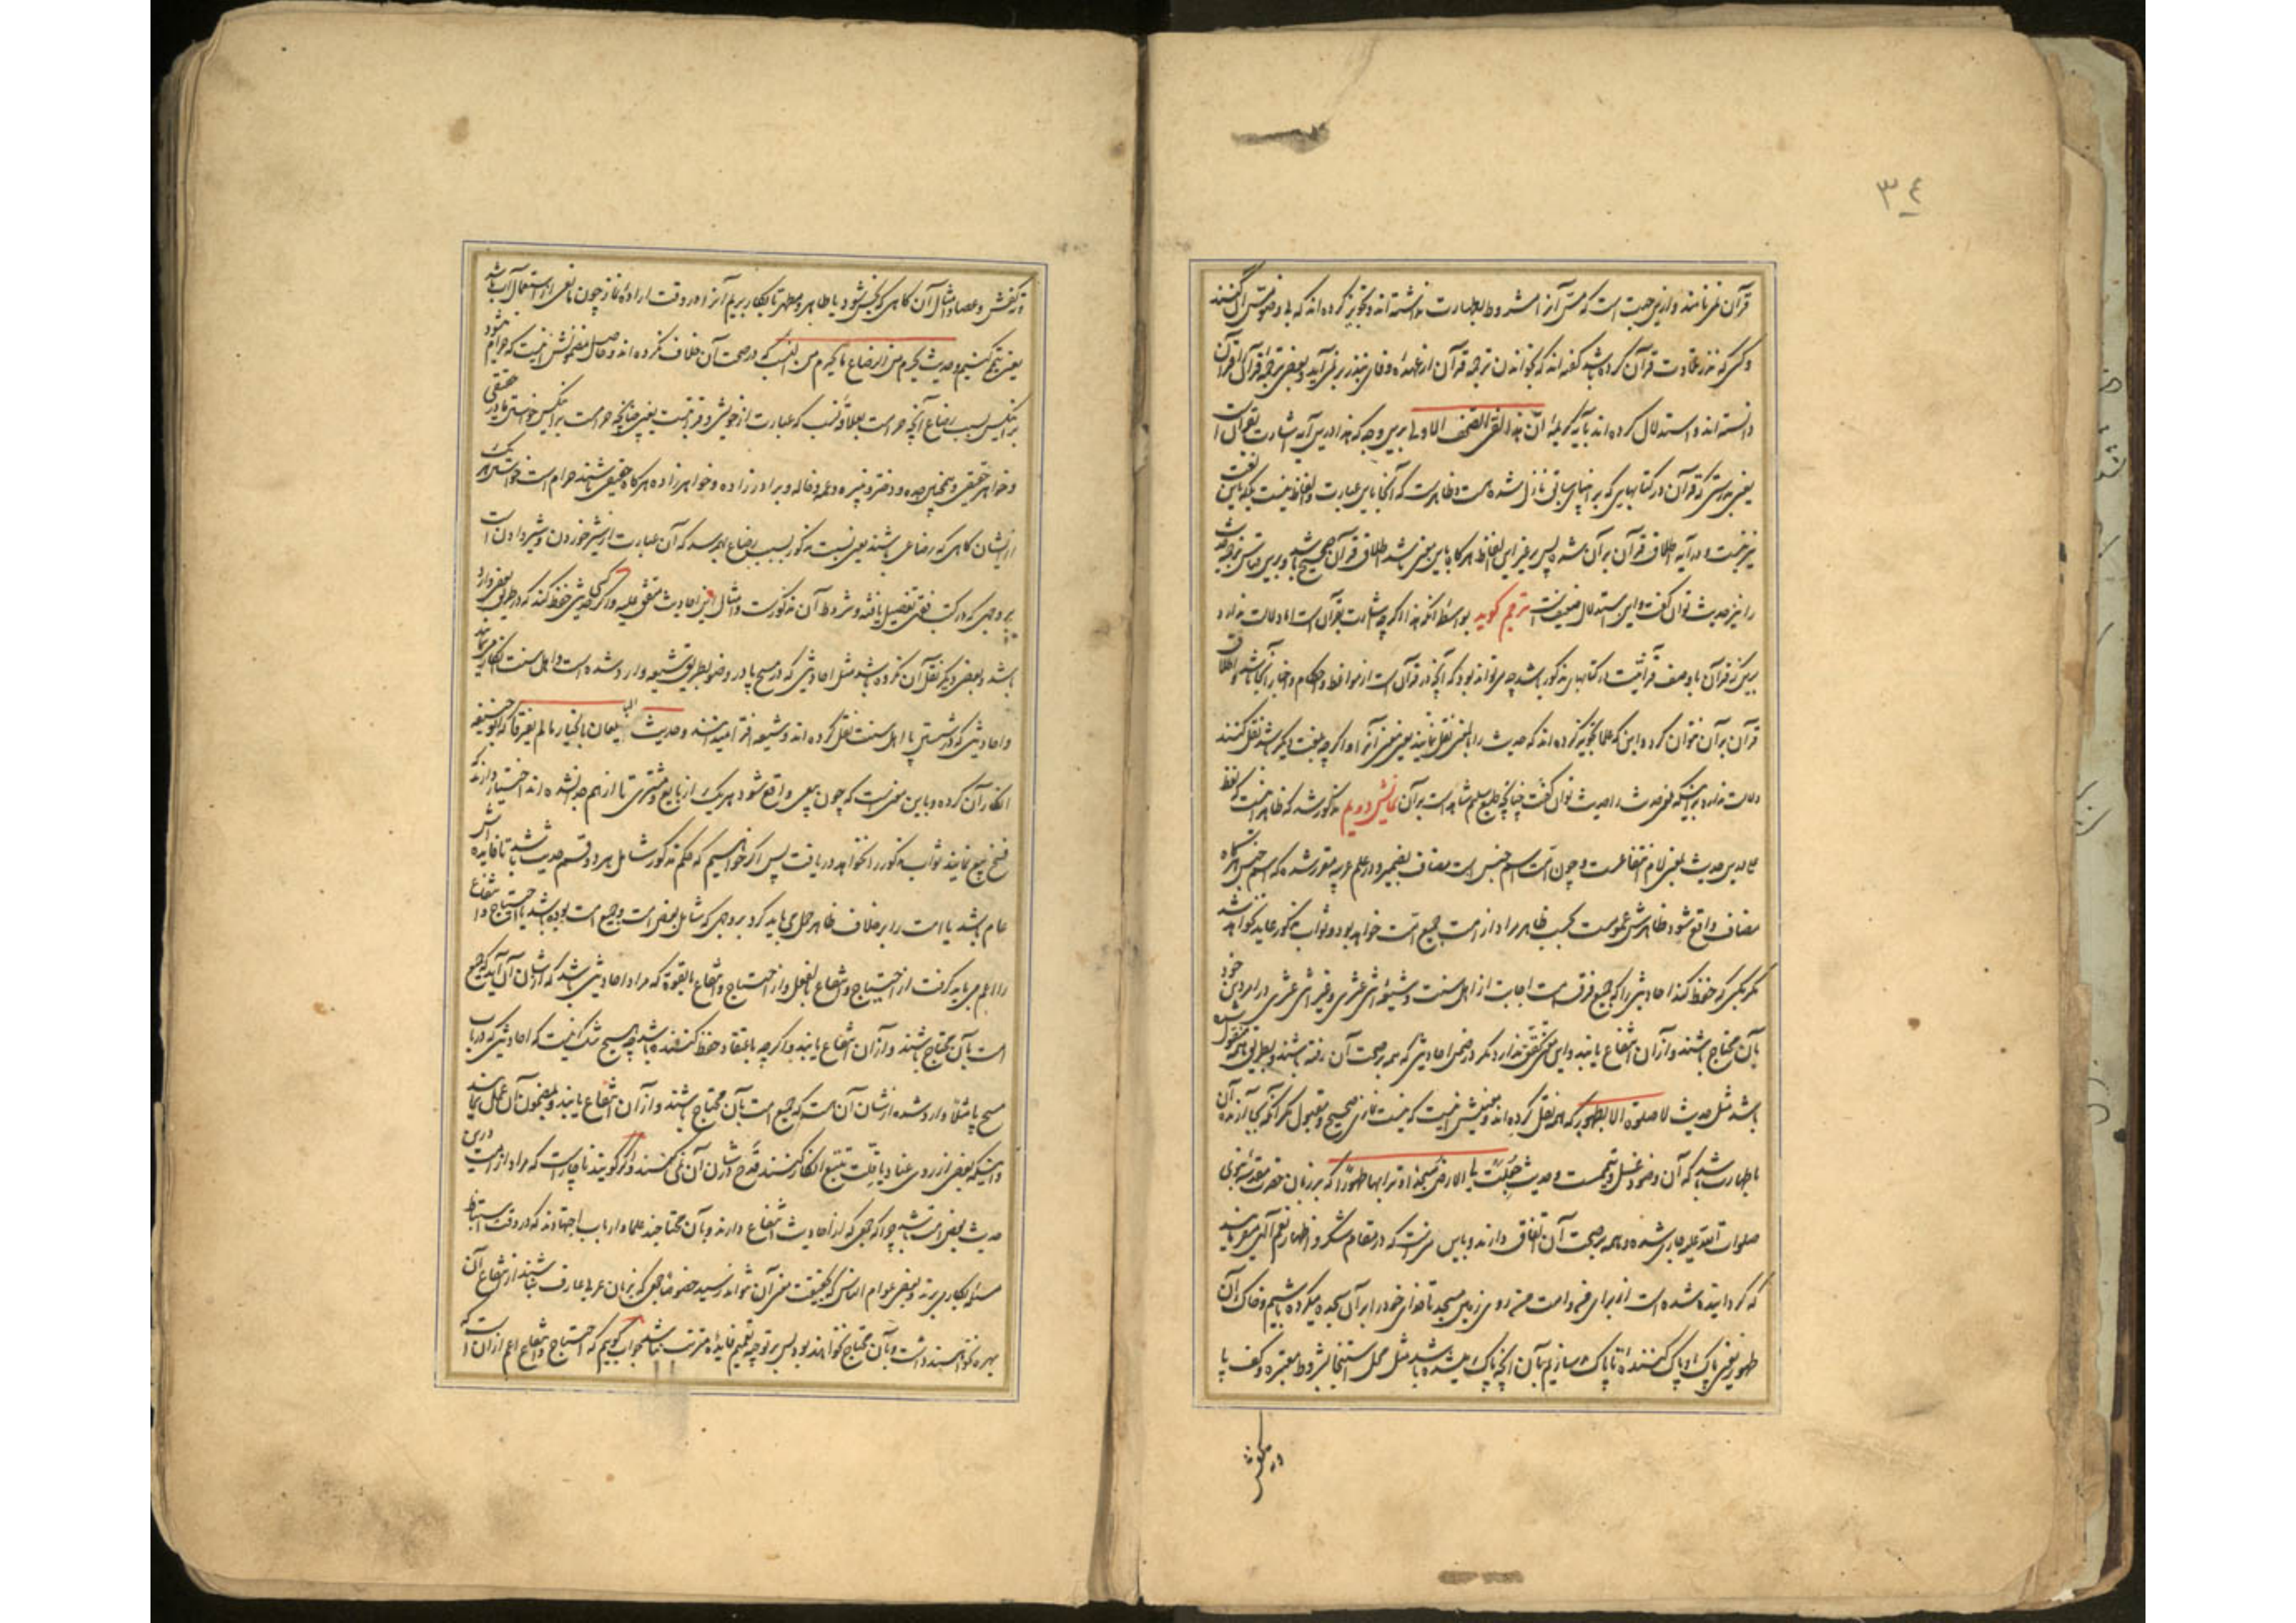 ٣٤
قرآن نمی‌نامند و ازین جهت است که مس آنرا مشروط بطهارت نداشته‌اند و تجویز کرده‌اند که بی وضو مس آن کنند
و کسی که نذر تلاوت قرآن کرده باشد گفته‌اند که بخواندن ترجمه قرآن از عهده وفای نذر بر نمی‌آید و بعضی ترجمه قرآن را قرآن
دانسته‌اند و استدلال کرده‌اند بآیه کریمه ان هذا لفی الصحف الاولی برین وجه که هذا درین آیه اشارت بقرآن است
یعنی بدرستی که قرآن در کتابهایی که بر انبیای سابق نازل شده هست و ظاهرست که آنجا باین عبارت و الفاظ نیست بلکه باین لغت
نیز نیست و در آیه اطلاق قرآن بر آن شده پس بر غیر این الفاظ هرگاه باین معنی باشد اطلاق قرآن صحیح باشد و برین قیاس ترجمه حدیث
را نیز حدیث توان گفت و این استدلال ضعیف است مترجم گوید بواسطه آنکه هذا اگرچه اشارت بقرآن است اما دلالت ندارد
برین که قرآن با وصف قرآنیت در کتابهای مذکور باشد چه می‌تواند بود که آنچه در قرآن است از مواعظ و احکام و اخبار آنجا باشد و اطلاق
قرآن بر آن نتوان کرد و این که علما تجویز کرده‌اند که حدیث را بالمعنی نقل نمایند یعنی معنی آنرا اگرچه بلغت دیگر باشد نقل کنند
دلالت ندارد بر اینکه معنی حدیث را حدیث توان گفت چنانچه طبع سلیم شاهد است بر آن نمایش دویم مذکور شد که ظاهر آنست که لفظ
علی درین حدیث بمعنی لام انتفاعست و چون امت اسم جنس است مضاف بضمیر و در علم عربیه مقرر شده که اسم جنس هرگاه
مضاف واقع شود ظاهرش عمومست بحسب ظاهر مراد از امت جمیع امت خواهد بود و ثواب مذکور عاید نخواهد شد
مگر بکسی که حفظ کند احادیثی را که جمیع فرق امت اجابت از اهل سنت و شیعه اثنی عشری و غیر اثنی عشری در امر دین خود
بآن محتاج باشند و از آن انتفاع یابند و این معنی تحقق ندارد مگر در ضمن احادیثی که همه بر صحت آن رفته باشند و بطریق همه منقول شده
باشد مثل حدیث لا صلوة الا بطهور که همه نقل کرده‌اند و معنیش اینست که نیست نمازی صحیح و مقبول مگر آنکه بجا آرنده آن
باطهارت باشد که آن وضو و غسل و تیممست و حدیث جعلت لی الارض مسجدا و ترابها طهورا که بر زبان حضرت مقدسه نبوی
صلوات الله علیه جاری شده و همه بر صحت آن اتفاق دارند و باین معنی است که در مقام شکر و اظهار نعم الهی می‌فرمایند
که گردانیده شده است از برای من و امت من روی زمین مسجد تا هرجای خود را بر آن سجده میکرده باشیم و خاک آن
طهور یعنی پاک و پاک کننده تا پاک سازیم بآن آنچه پاک میشده باشد مثل محل استنجا بشروط معتبره و کف پا
و ته کفش
و ته کفش و عصا و امثال آن گاهی که نجس شود یا طاهر و مطهر تا بکار بریم آنرا در وقت اراده نماز چون مانعی از استعمال آب باشد
یعنی تیمم کنیم و حدیث یحرم من الرضاع ما یحرم من النسب که در صحت آن خلاف نکرده‌اند و حاصل مضمونش اینست که حرام میشود
بر اینکس بسبب رضاع آنچه حرامست بعلاقه نسب که عبارت از خویشی و قرابتست یعنی چنانچه حرامست بر اینکس خواستن مادر حقیقی
و خواهر حقیقی و همچنین جده و دختر و نبیره و عمه و خاله و برادرزاده و خواهرزاده هرگاه حقیقی باشند حرام است خواستن هر یک
ازیشان گاهی که رضاعی باشند یعنی نسبت مذکور بسبب رضاع بهم رسد که آن عبارت از شیر خوردن و شیر دادن است
بر وجهی که در کتب فقهی تفصیل یافته و شروط آن مذکورست و امثال این احادیث متفق علیه و اگر کسی حدیثی حفظ کند که در طریق بعضی وارد
باشد و بعضی دیگر نقل آن نکرده باشند مثل احادیثی که در مسح پا در وضو بطریق شیعه وارد شده است و اهل سنت انکار می‌نمایند
و احادیثی که در شستن پا اهل سنت نقل کرده‌اند و شیعه افترا میدانند و حدیث البیعان بالخیار ما لم یفترقا که ابو حنیفه
انکار آن کرده و باین معنی است که چون بیعی واقع شود هر یک از بایع و مشتری تا از هم جدا نشده‌اند اختیار دارند که
فسخ بیع نمایند ثواب مذکور را نخواهد دریافت پس اگر خواهیم که حکم مذکور شامل هر دو قسم حدیث باشد تا فایده‌اش
عام باشد یا امت را بر خلاف ظاهر حمل می‌باید کرد بر وجهی که شامل بعض امت و جمیع امت بوده باشد یا احتیاج و انتفاع
را اعم می‌باید گرفت از احتیاج و انتفاع بالفعل و از احتیاج و انتفاع بالقوة که مراد احادیثی باشد که از شان آن آید که جمیع
امت بآن محتاج باشند و از آن انتفاع یابند و اگرچه باعتقاد حفظ کننده باشد چه هیچ شک نیست که احادیثی که در باب
مسح پا مثلا وارد شده از شان آن هست که جمیع امت بآن محتاج باشند و از آن انتفاع یابند و بمضمون آن عمل نمایند
و اینکه بعضی از روی عناد یا قلت تتبع انکار کنند قدح در شان آن نمی‌کنند و اگر گویند ناچار است که مراد از امت درین
حدیث بعض امت باشد چرا که جمعی که از احادیث انتفاع دارند و بآن محتاجند علما و ارباب اجتهادند که در وقت استنباط
مسئله بکار می‌برند و بعضی عوام الناس که بحقیقت معنی آن نتوانند رسید خصوصا جمعی که بزبان عربی عارف نباشند از انتفاع آن
بهره نخواهند داشت و بآن محتاج نخواهند بود پس بر توجیه تعمیم فایده مترتب نباشد جواب گوییم که احتیاج و انتفاع اعم از آن است که